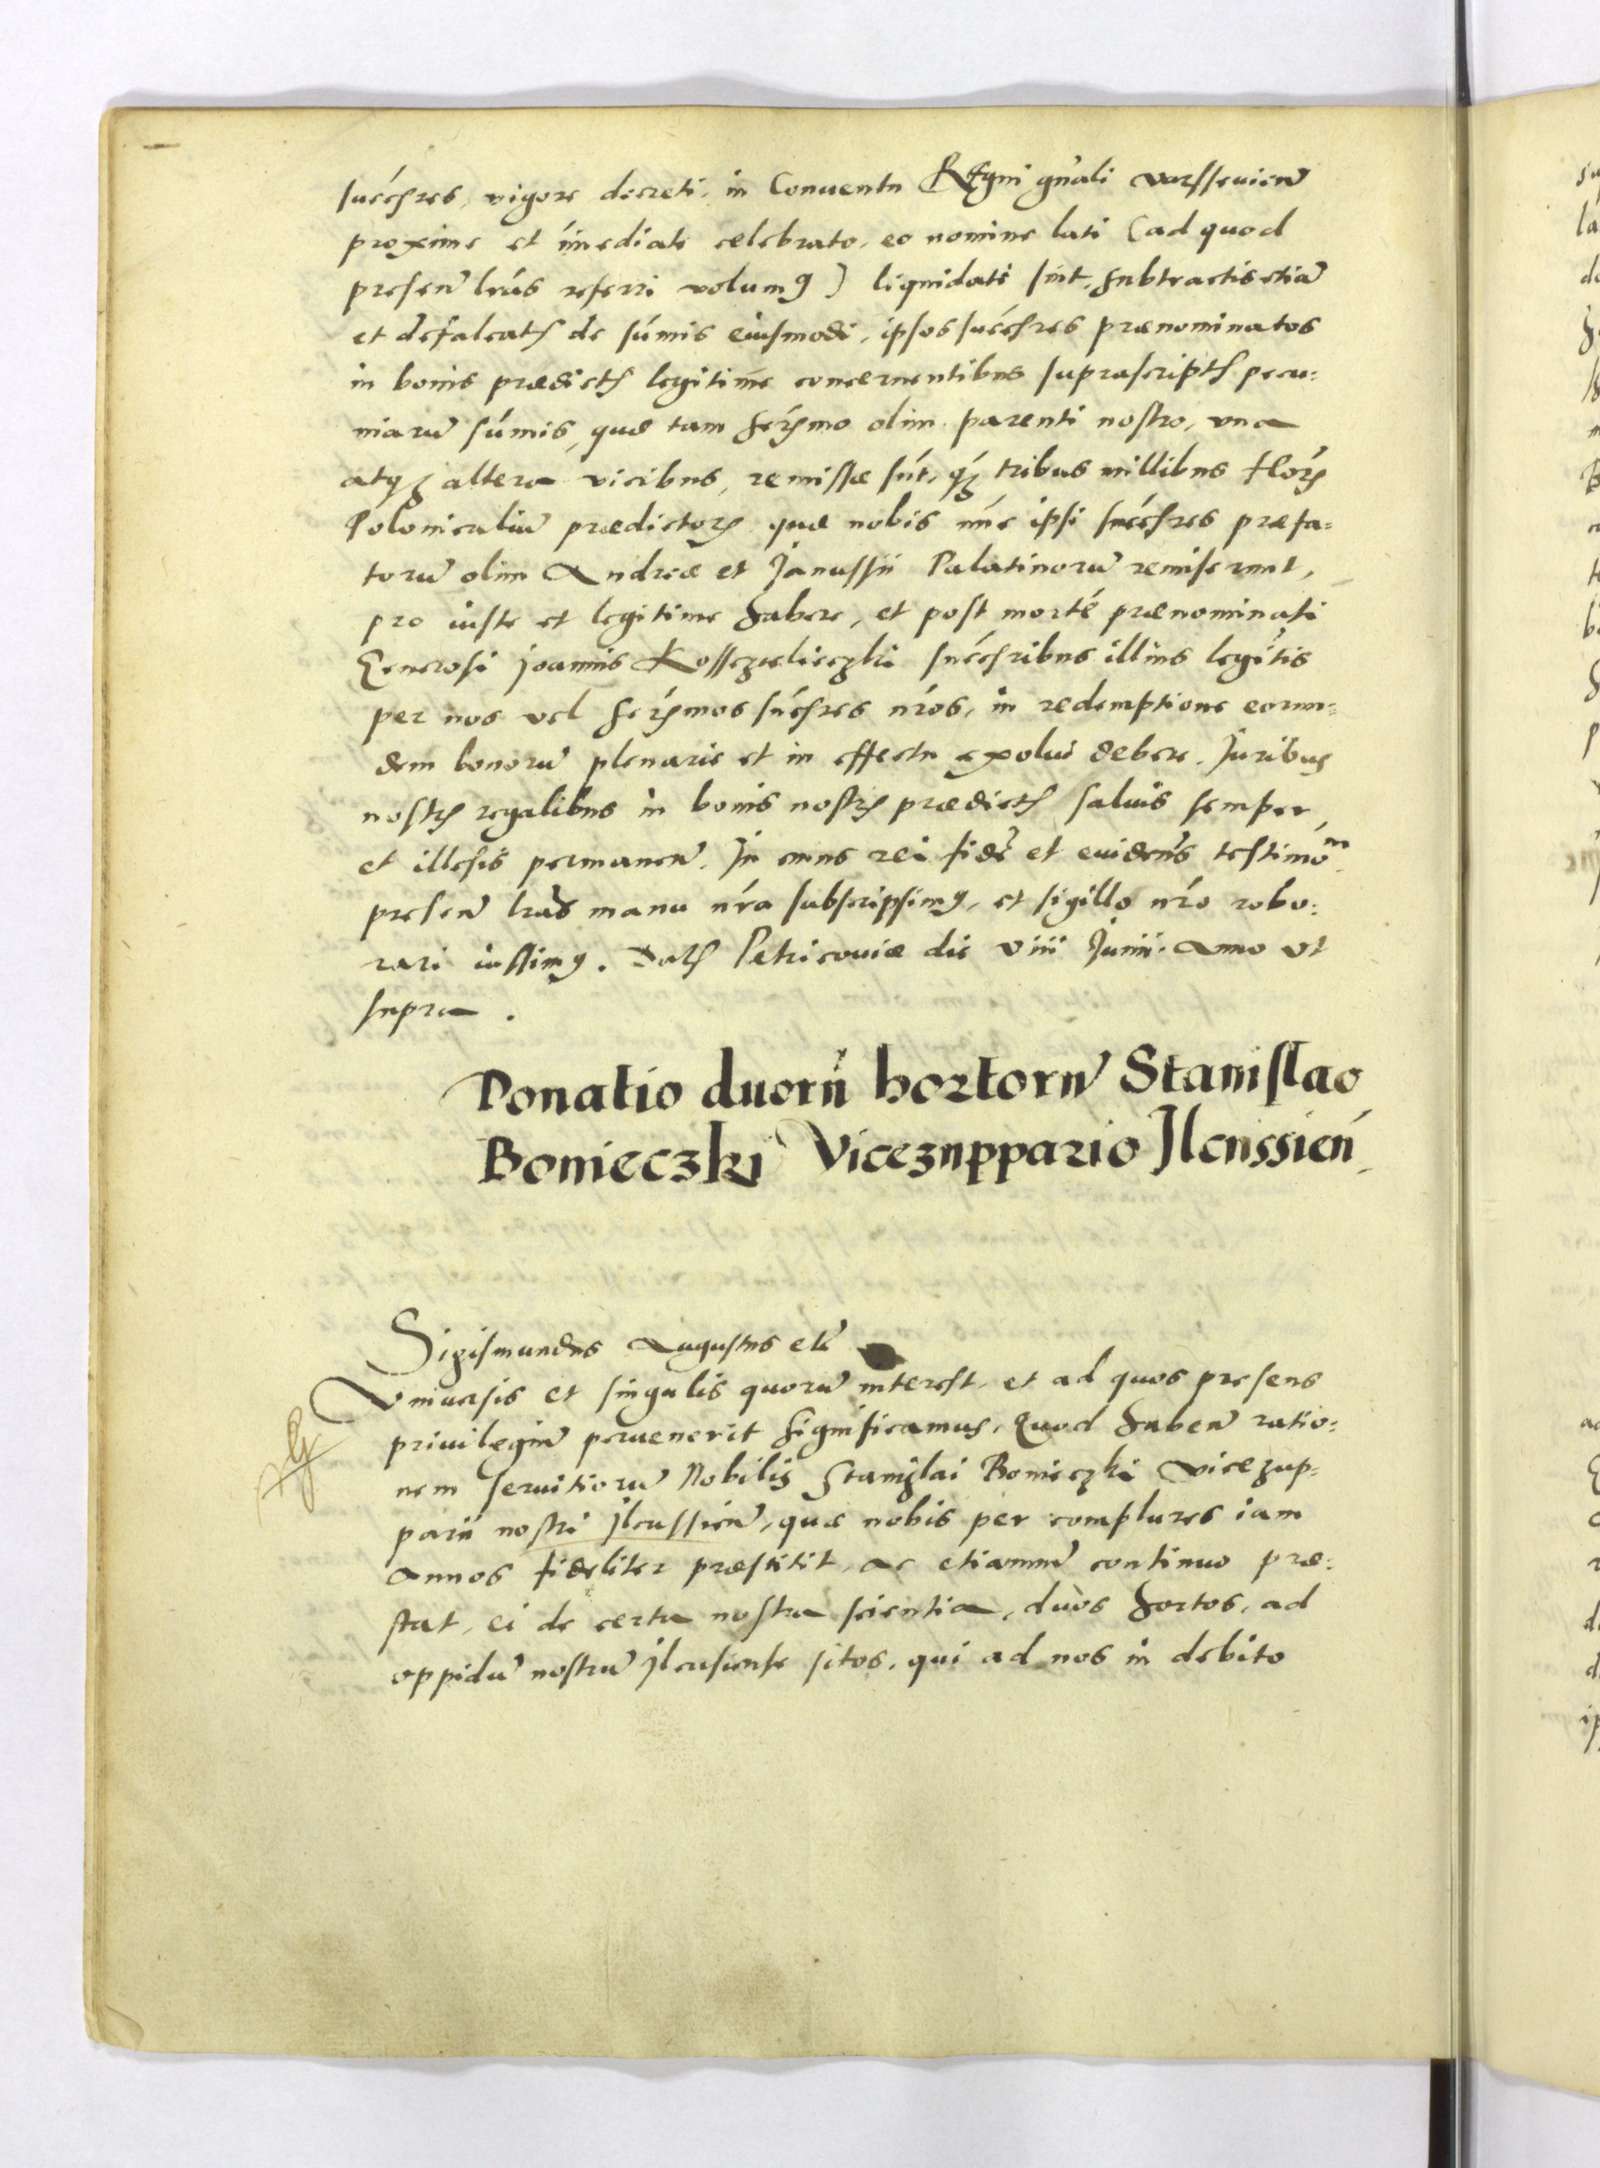 succesres, vigore decreti, in Conuentu Regni gn̄ali varsseuien̄
proxime et im̄ediate celebrato, eo nomine lati (ad quod
presen̄ l̄ras referri volumꝯ) liquidati sint, subtractis etiam̄
et defalcatꝭ de sum̄is eiusmodi, ipsos succesres prænominatos
in bonis prædictꝭ legitime concernentibus suprascriptꝭ pecu:
niarum̄ sum̄is, quæ tam serꝭmo olim parenti nostro, vna
atqꝫ altera vicibus, remissæ sūt, qꝫ tribus millibus florꝭ
Polonicalium̄ prædictorꝭ quæ nobis nūc ipsi succesres præfa:
torum̄ olim Andreæ et Janussii Palatinorum̄ remiserunt,
pro iuste et legitime habere, et post mortē prænominati
Generosi Joannis Kossczielieczki succesribus illius legit̄is
per nos vel serꝭmos succesres nr̄os, in redemptione eorun:
dem bonorum̄ plenarie et in effectu exolui debere. Juribus
nostrꝭ regalibus in bonis nostrꝭ prædictꝭ saluis semper
et illesis permanen̄. In cuius rei fidē et euidens testimom̄
presen̄ l̄ras manu nr̄a subscripsimꝯ, et sigillo nr̄o robo:
rari iussimꝯ. Datꝭ Petricouiæ die viii Junii. Anno vt
supra.
Donatio duorū hortorum̄ Stanislao
Bonieczki Vicezuppario Jlcussień
Sigismundus Augustus etc̄
Vniuersis et singulis quorum̄ interest, et ad quos presens
priuilegium̄ peruenerit significamus, Quod haben̄ ratio:
nem seruitiorum̄ Nobilis Stanislai Bonieczki vicezup:
parii nostri Jlcussien̄, quæ nobis per complures iam
annos fideliter præstitit, ac etiamnum̄ continuo præ:
stat, ei de certa nostra scientia, duos hortos, ad
oppidum̄ nostrum̄ Jlcusiense sitos, qui ad nos in debito